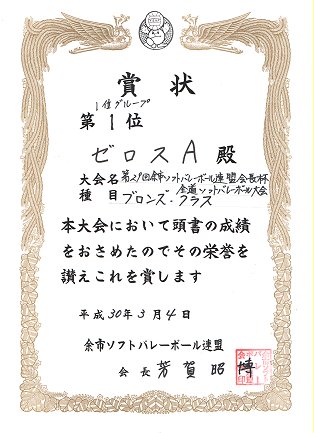 賞状
1位グループ
第1位
ゼロスA 殿
大会名 第29回余市ソフトバレーボール連盟会長杯
全道ソフトバレーボール大会
種目 ブロンズ・クラス
本大会において頭書の成績
をおさめたのでその栄誉を
讃えこれを賞します
平成30年3月4日
余市ソフトバレーボール連盟
会長 芳賀昭博